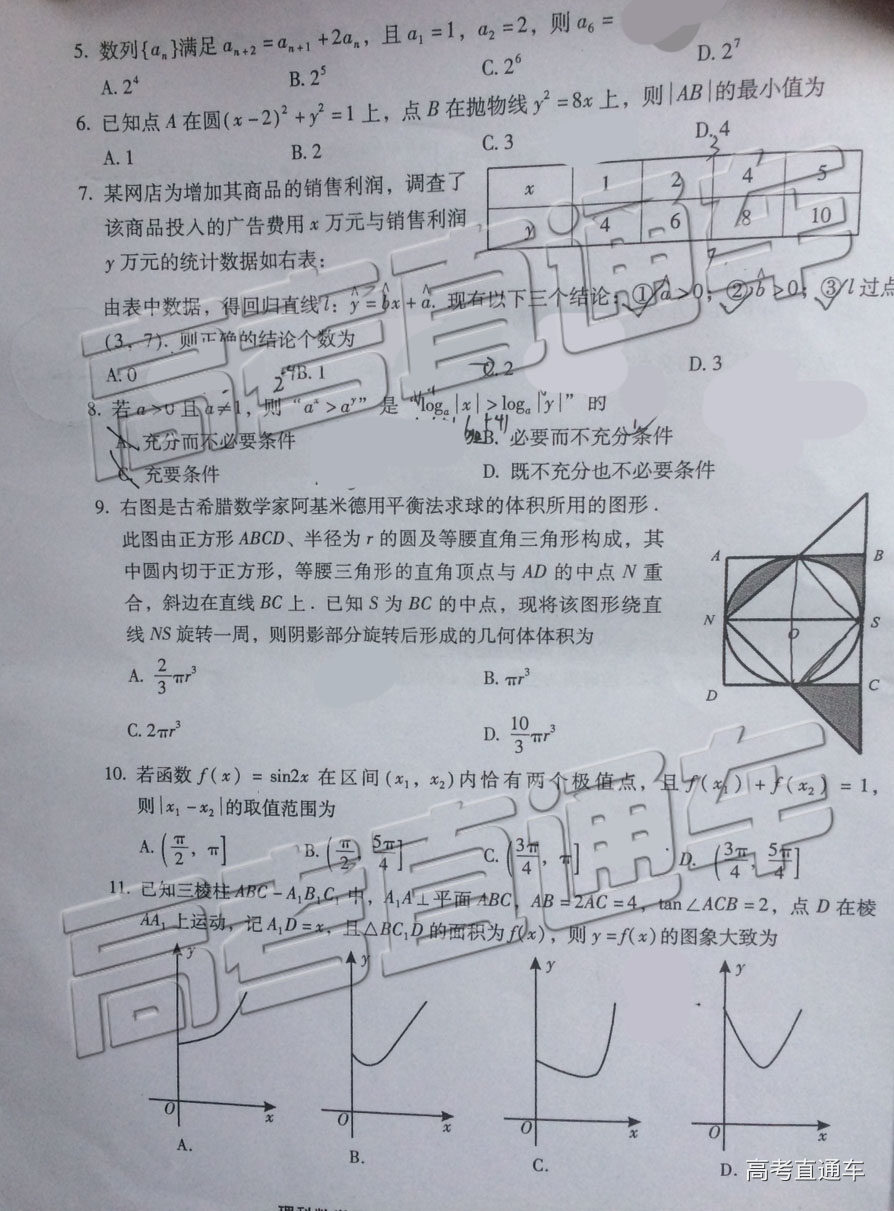 5. 数列{aₙ}满足 aₙ₊₂ = aₙ₊₁ + 2aₙ，且 a₁ = 1，a₂ = 2，则 a₆ =
A. 2⁴ B. 2⁵ C. 2⁶ D. 2⁷
6. 已知点 A 在圆(x-2)² + y² = 1 上，点 B 在抛物线 y² = 8x 上，则|AB|的最小值为
A. 1 B. 2 C. 3 D. 4
7. 某网店为增加其商品的销售利润，调查了
该商品投入的广告费用 x 万元与销售利润
y 万元的统计数据如右表：
x 1 2 4 5
y 4 6 8 10
由表中数据，得回归直线 l：ŷ = b̂x + â. 现有以下三个结论：① â > 0；② b̂ > 0；③ l 过点
(3，7). 则正确的结论个数为
A. 0 B. 1 C. 2 D. 3
8. 若 a > 0 且 a ≠ 1，则“aˣ > aʸ”是“logₐ|x| > logₐ|y|”的
A. 充分而不必要条件 B. 必要而不充分条件
C. 充要条件 D. 既不充分也不必要条件
9. 右图是古希腊数学家阿基米德用平衡法求球的体积所用的图形．
此图由正方形 ABCD、半径为 r 的圆及等腰直角三角形构成，其
中圆内切于正方形，等腰三角形的直角顶点与 AD 的中点 N 重
合，斜边在直线 BC 上．已知 S 为 BC 的中点，现将该图形绕直
线 NS 旋转一周，则阴影部分旋转后形成的几何体体积为
A B
N O S
D C
A. 2/3 πr³ B. πr³
C. 2πr³ D. 10/3 πr³
10. 若函数 f(x) = sin2x 在区间(x₁，x₂)内恰有两个极值点，且 f(x₁) + f(x₂) = 1，
则|x₁ - x₂|的取值范围为
A. (π/2，π] B. (π/2，5π/4] C. (3π/4，π] D. (3π/4，5π/4]
11. 已知三棱柱 ABC - A₁B₁C₁ 中，A₁A⊥平面 ABC，AB = 2AC = 4，tan∠ACB = 2，点 D 在棱
AA₁ 上运动，记 A₁D = x，且△BC₁D 的面积为 f(x)，则 y = f(x)的图象大致为
y y y y
O x O x O x O x
A. B. C. D.
高考直通车
高考直通车
高考直通车